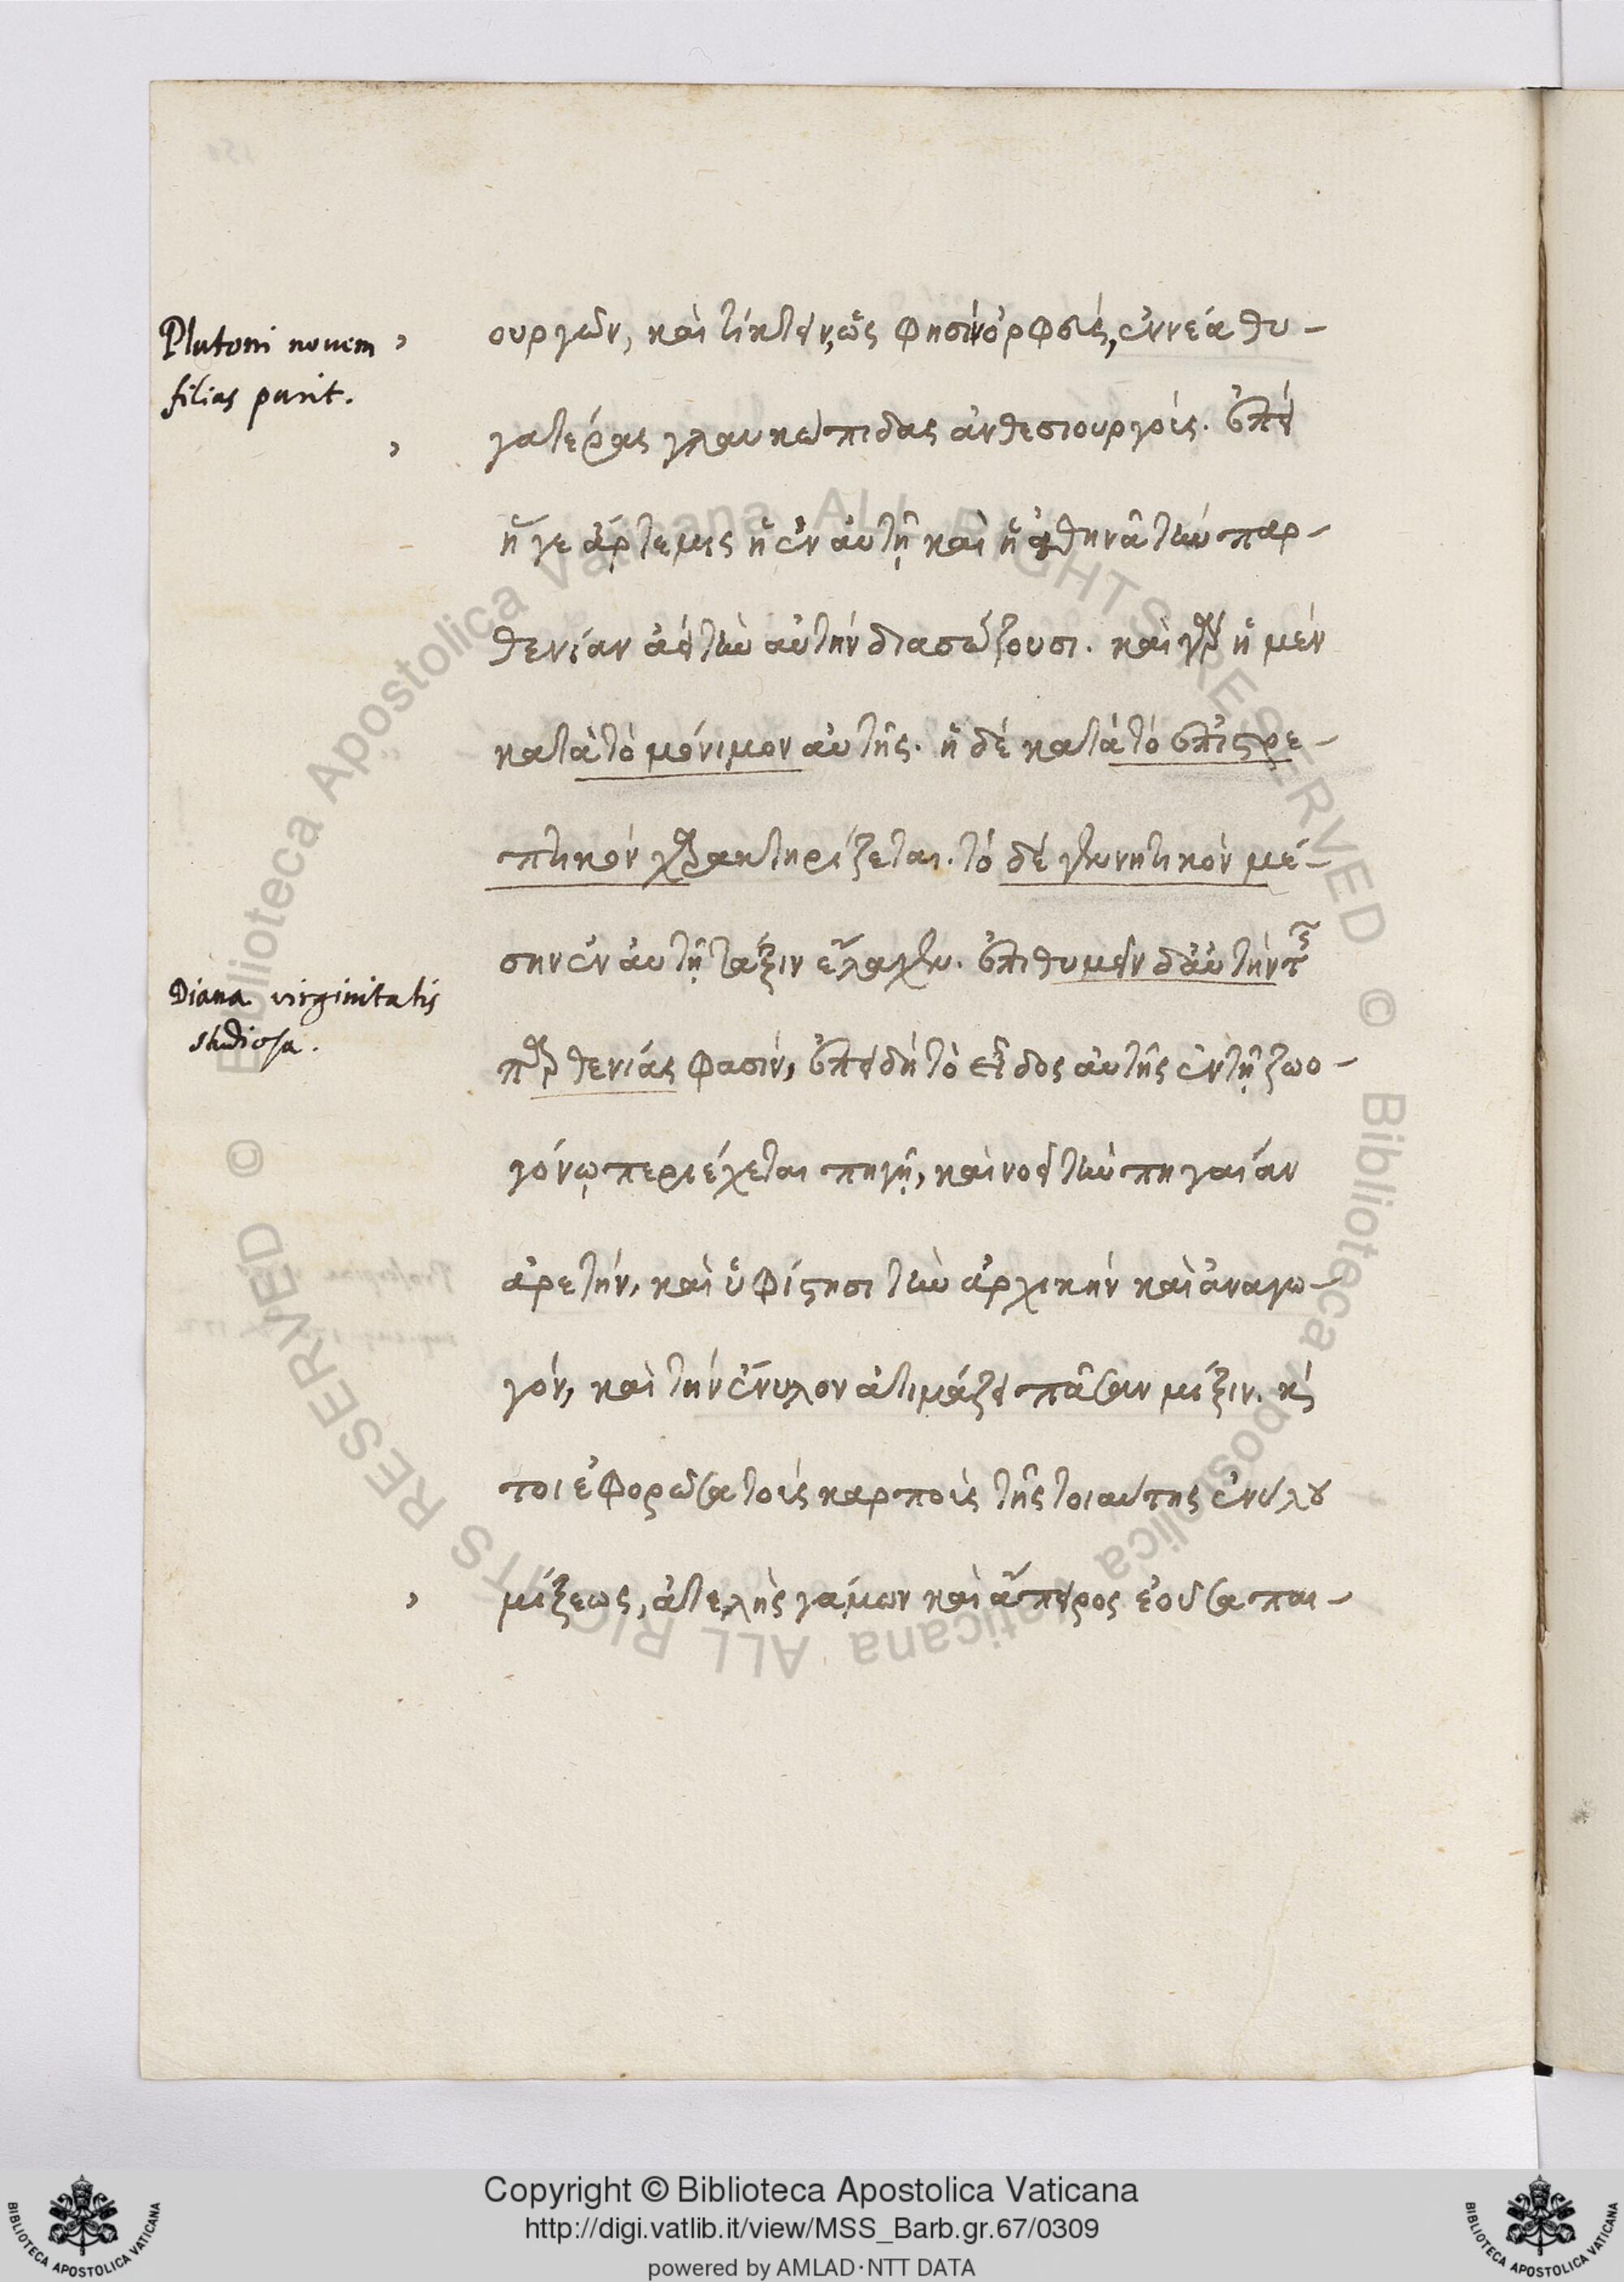 Plutoni novem
filias parit.
ουργῶν, καὶ τίκτειν, ὥς φησὶν ὀρφεὺς, ἐννέα θυ-
γατέρας γλαυκώπιδας ἀνθεσιουργούς. ἐπεί
ἥ γε ἄρτεμις ἡ ἐν αὐτῇ καὶ ἡ ἀθηνᾶ τὴν παρ-
θενίαν ἀεὶ τὴν αὐτὴν διασώζουσι. καὶ γὰρ ἡ μὲν
κατὰ τὸ μόνιμον αὐτῆς. ἡ δὲ κατὰ τὸ ἐπιστρε-
πτικὸν χαρακτηρίζεται. τὸ δὲ γεννητικὸν μέ-
σην ἐν αὐτῇ τάξιν ἔλαχεν. ἐπιθυμεῖν δ' αὐτὴν τῆς
Diana virginitatis
studiosa.
παρθενίας φασὶν, ἐπειδὴ τὸ εἶδος αὐτῆς ἐν τῇ ζωο-
γόνῳ περιέχεται πηγῇ, καὶ νοεῖ τὴν πηγαίαν
ἀρετήν, καὶ ὑφίστησι τὴν ἀρχικὴν καὶ ἀναγω-
γόν, καὶ τὴν ἔνυλον ἀτιμάζει πᾶσαν μίξιν. καί
τοι ἐφορῶσα τοὺς καρποὺς τῆς τοιαύτης ἐνύλου
μίξεως, ἀτελὴς γάμων καὶ ἄπειρος ἐοῦσα παι-
Copyright © Biblioteca Apostolica Vaticana
http://digi.vatlib.it/view/MSS_Barb.gr.67/0309
powered by AMLAD·NTT DATA